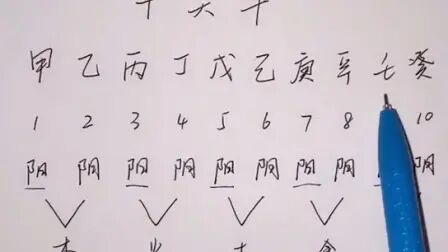 十天干
甲 乙 丙 丁 戊 己 庚 辛 壬 癸
1 2 3 4 5 6 7 8 10
阳 阴 阳 阴 阳 阴 阳 阴 阴
木 火 土 金